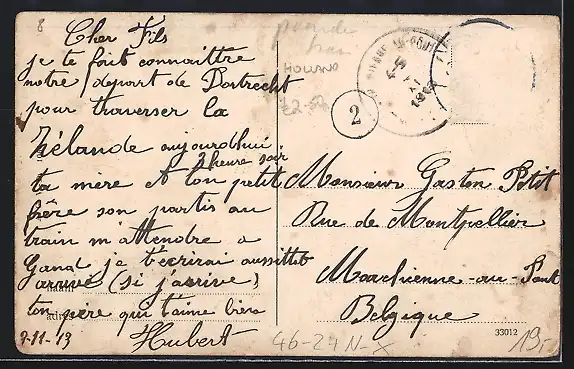 8
Cher Fils
je te fait connaittre
notre départ de Dortrecht
pour traverser la
Zélande aujourdhui
2 heure soir
ta mère et ton petit
frère son partis au
train m'attendre a
Gand je t'ecrirai aussittot
arrivé (si j'arrive)
ton père qui t'aime bien
Hubert
9-11-13
HOLLAND
2
Monsieur Gaston Petit
Rue de Montpellier
Marchienne-au-Pont
Belgique
33012
46-24 N-X
19,-